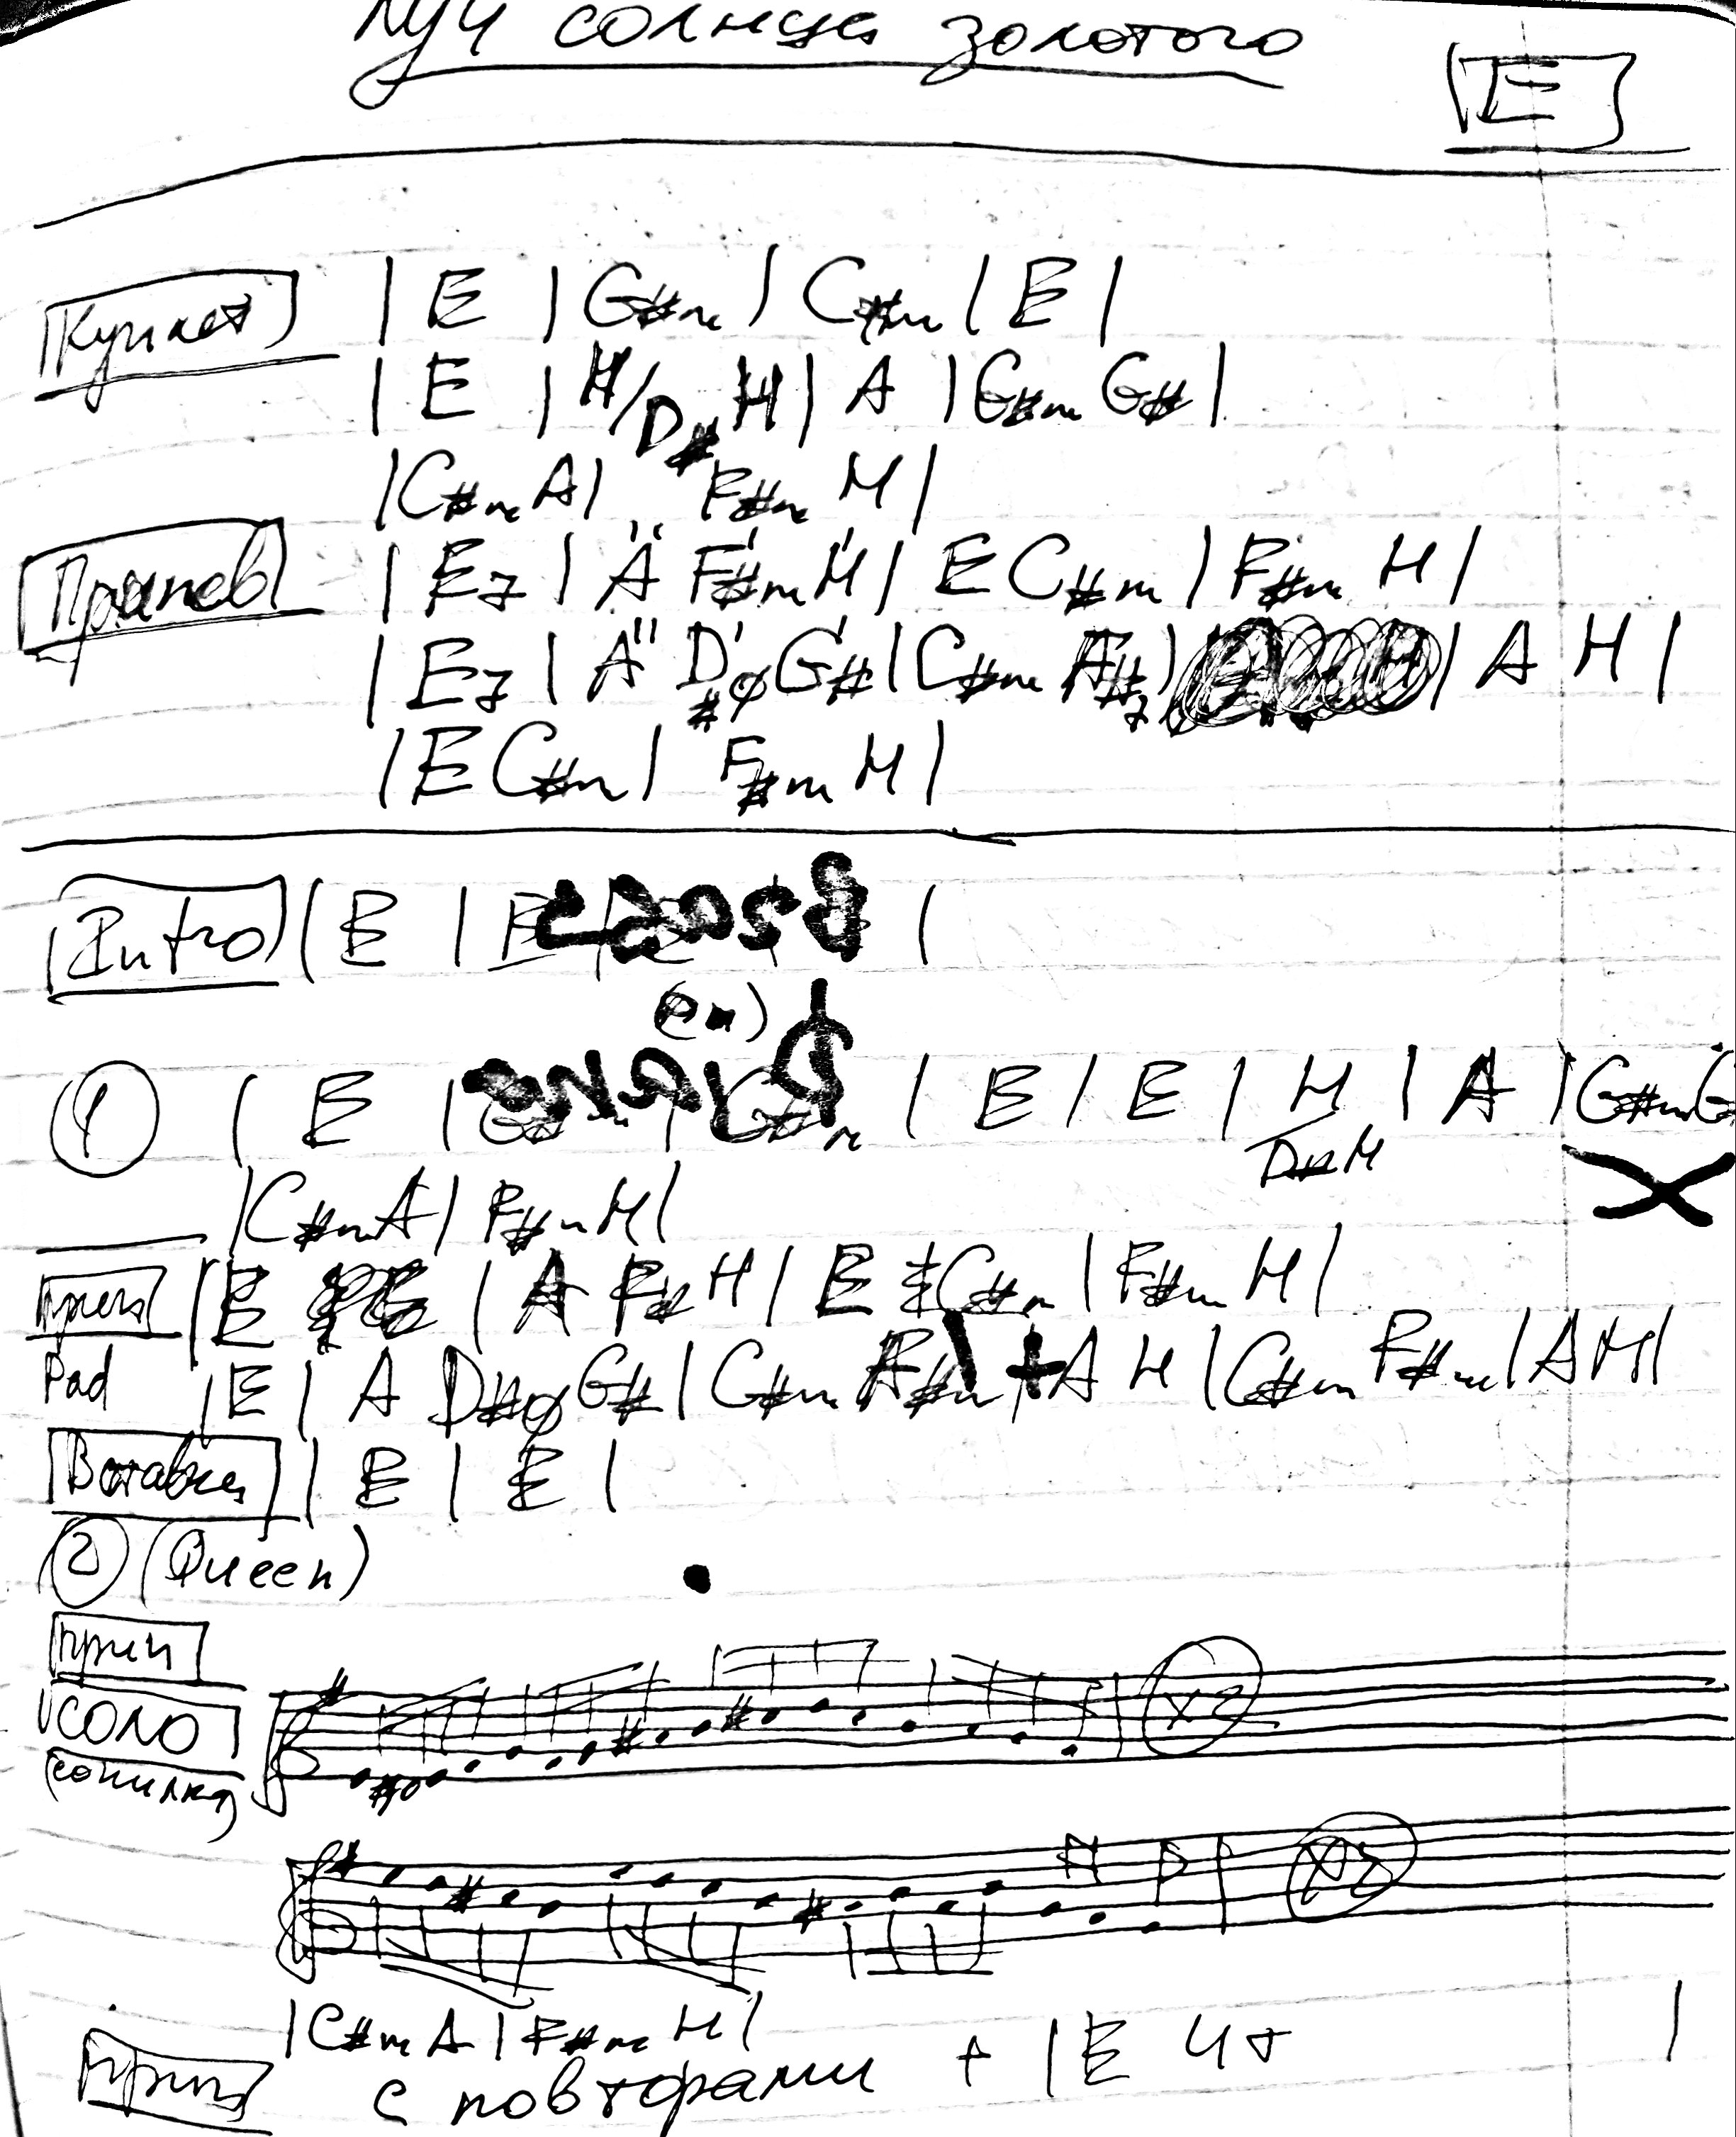 Луч солнца золотого
E
Куплет | E | G#m | C#m | E |
| E | H/D# H | A | G#m G# |
| C#m A | F#m H |
Припев | E7 | A F#m H | E C#m | F#m H |
| E7 | A D#ø G# | C#m A#7 | | A H |
| E C#m | F#m H |
Intro | E | E |
1 | E | G#m | E | E | H/D# H | A | G#m G
| C#m A | F#m H |
прип | E | A F# H | E C#m | F#m H |
Pad | E | A D#ø G# | C#m | + A H | C#m F#m | A H |
Вставка | E | E |
2 (Queen)
прип
СОЛО x2
(сопилка)
x3
| C#m A | F#m H |
прип с повторами + | E 4т |